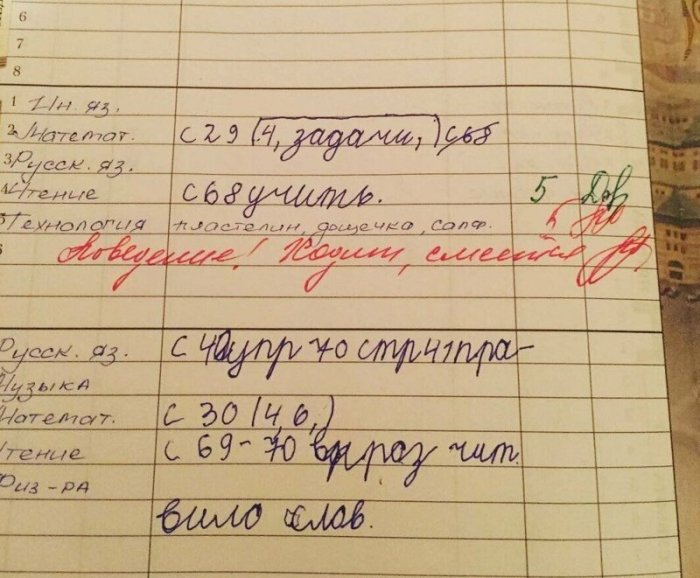 6
7
8
1 Ин. яз.
2 Математ. с 29 (4, задачи,) с68
3 Русск. яз.
4 Чтение с 68 учить. 5
5 Технология пластелин, дощечка, салф. 5
6 Поведение! Ходит, смеётся
Русск. яз. с 40 упр 70 стр 41 пра-
Музыка
Математ. с 30 (4, 6,)
Чтение с 69-70 выраз чит.
Физ-ра
вило слов.